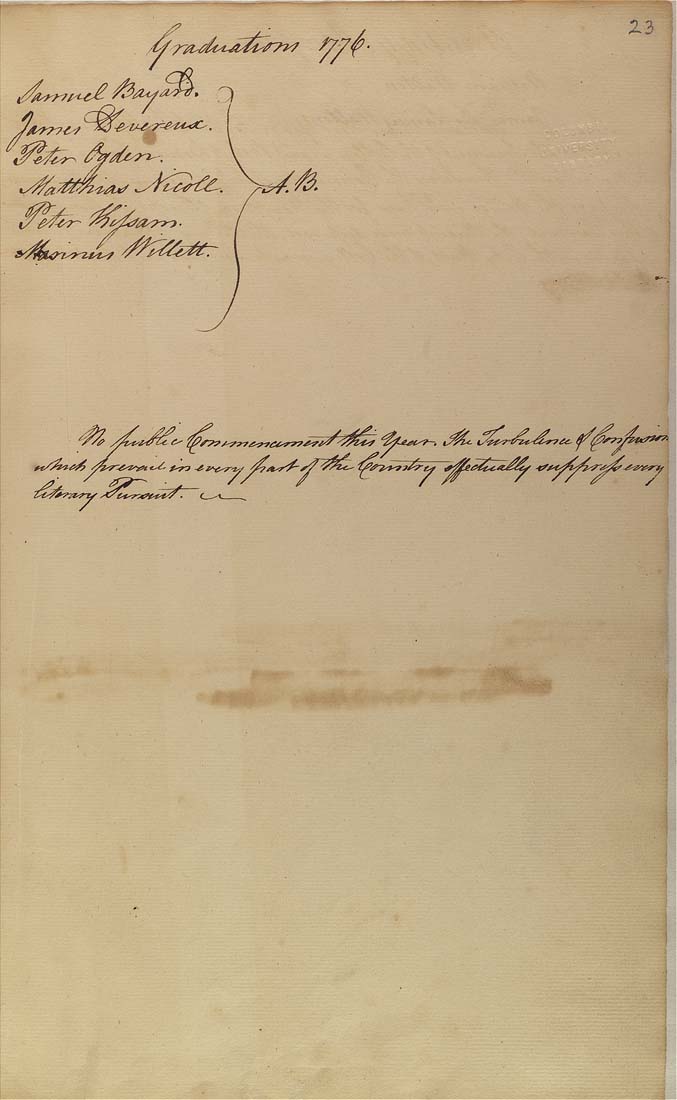 23
Graduations 1776.
Samuel Bayard.
James Devereux.
Peter Ogden.
Matthias Nicoll. A.B.
Peter Kissam.
Marinus Willett.
No public Commencament this Year. The Turbulence & Confusion
which prevail in every part of the Country effectually suppress every
literary Pursuit.
COLUMBIA
UNIVERSITY